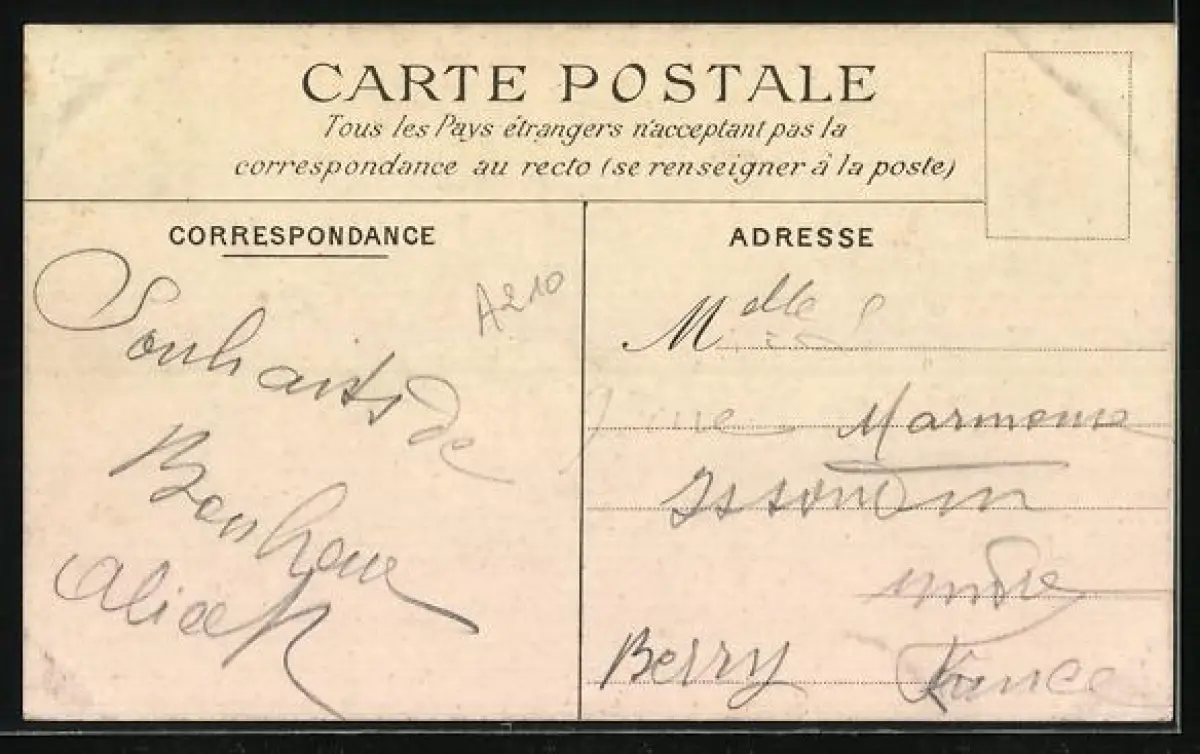 CARTE POSTALE
Tous les Pays étrangers n'acceptant pas la
correspondance au recto (se renseigner à la poste)
CORRESPONDANCE
A210
Souhaits de
Bonheur
Alice
ADRESSE
Melle
Issoudun
Indre
Berry France